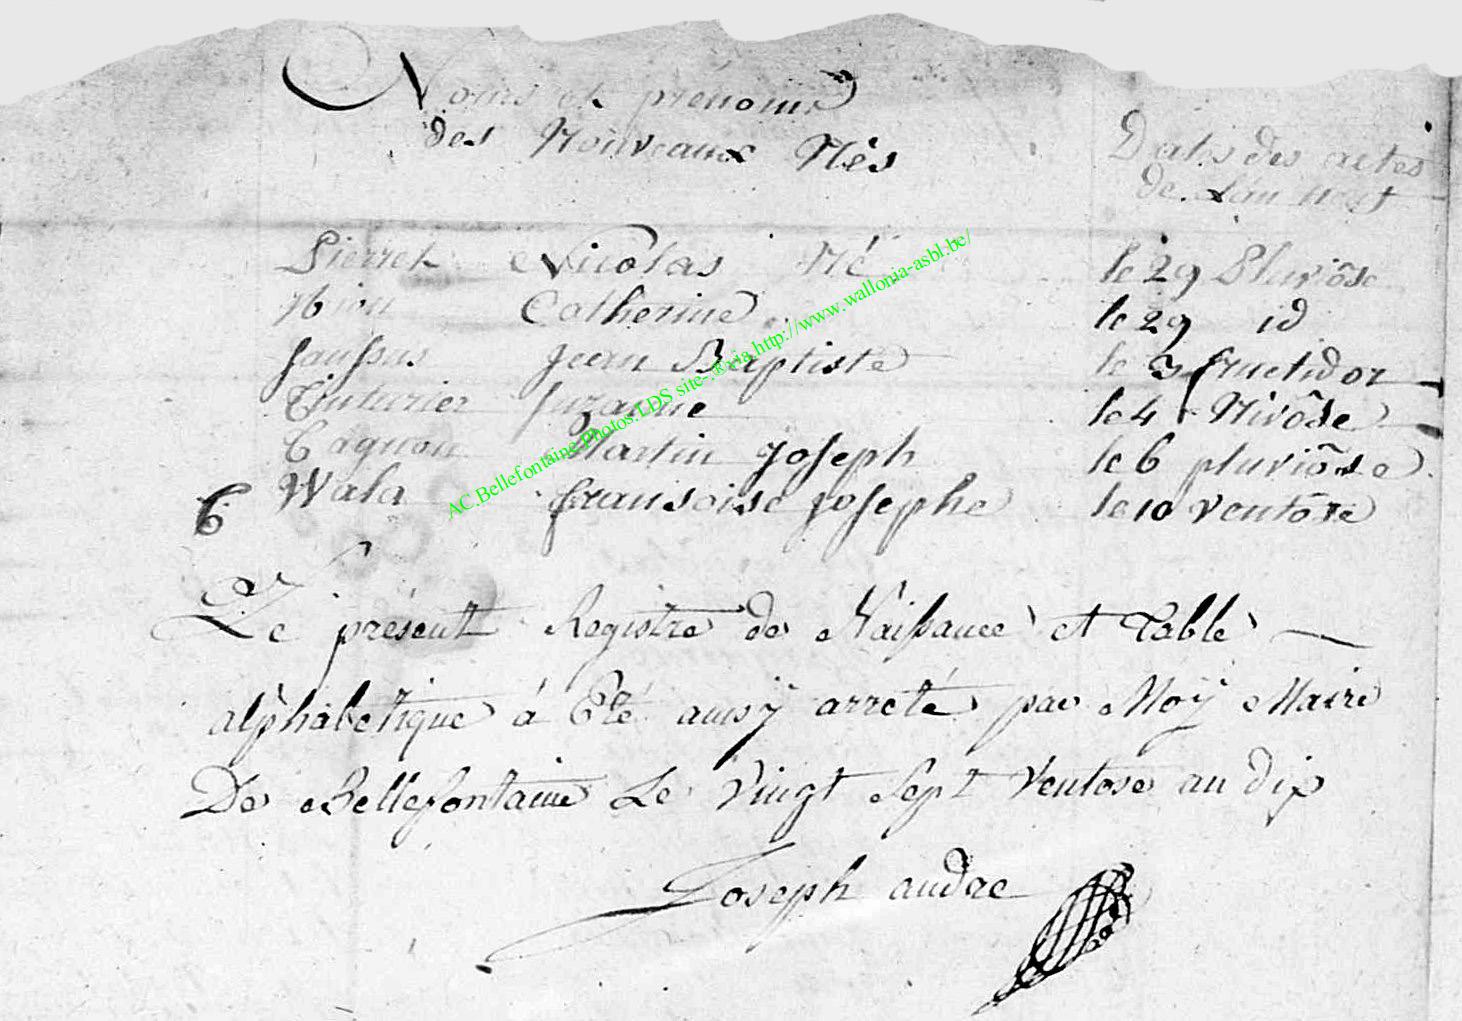 Noms et prénoms
des Nouveaux Nés
Dats des actes
de Lan neuf
Pierret Nicolas Né le 29 Pluviôse
Catherine le 29 id
Jean Baptiste le 3 fructidor
Tinturier Suzanne le 4 Nivôse
Cagnon Martin Joseph le 6 pluviôse
6 Wala fransoise josephe le 10 ventôse
AC.Bellefontaine.Photos.LDS site-®aia.http://www.wallonia-asbl.be/
Le présent Registre de Naissance et Table
alphabetique á Été ausÿ arreté par Moÿ Maire
De Bellefontaine Le Vingt Sept Ventose an dix
Joseph andre